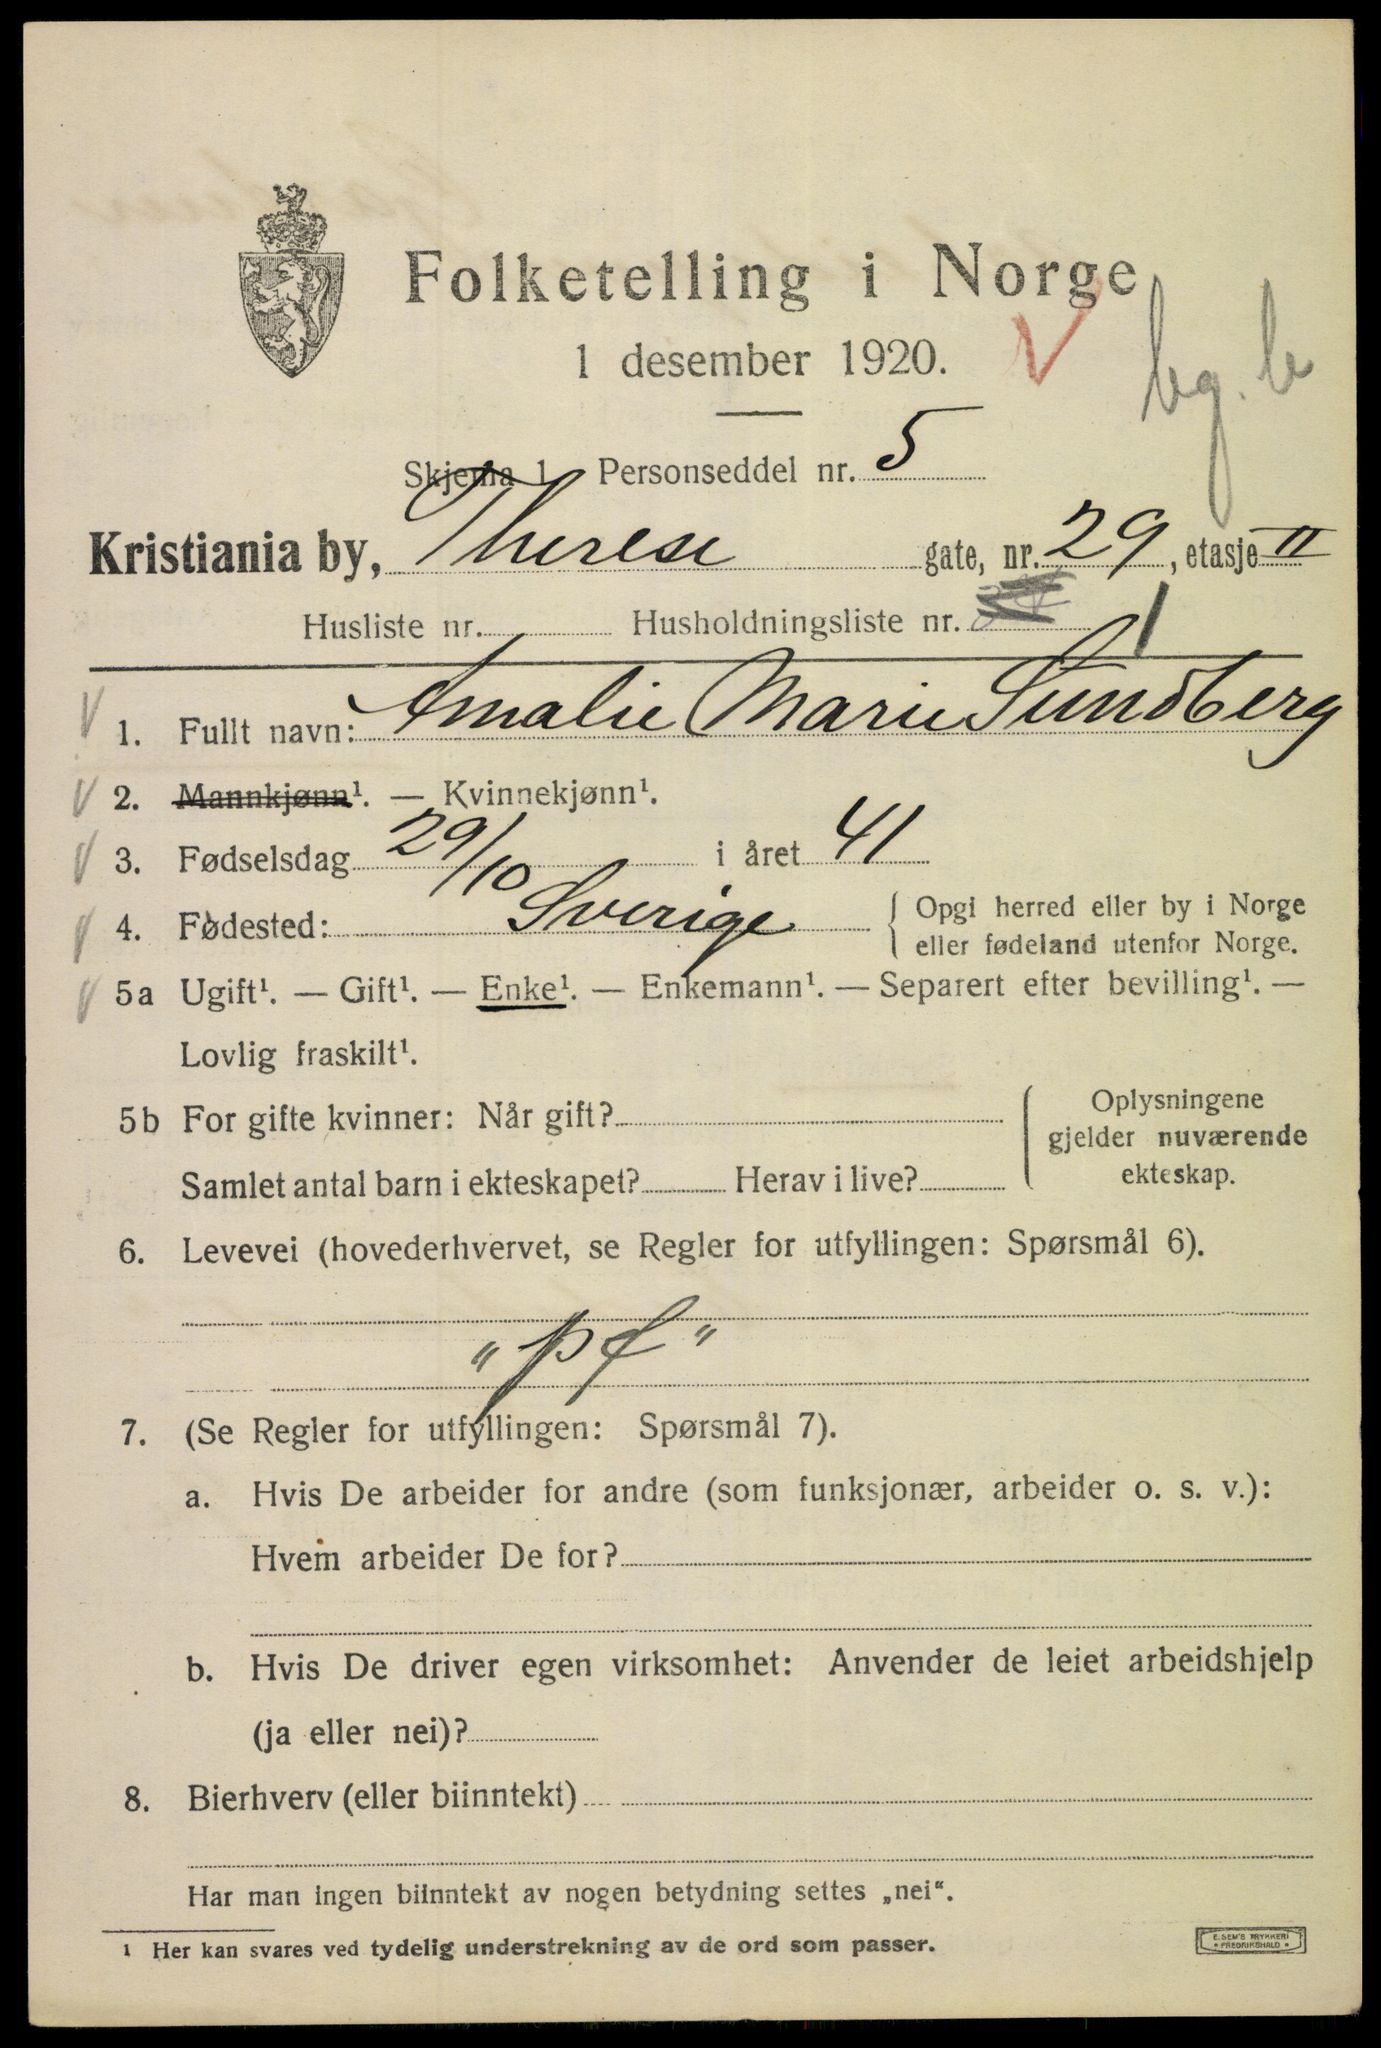 Folketelling i Norge
1 desember 1920.
bg. b
Skjema 1 Personseddel nr. 5
Kristiania by, Therese gate, nr. 29, etasje II
Husliste nr. Husholdningsliste nr. 1
1. Fullt navn: Amalie Marie Sundberg
2. Mannkjønn¹. — Kvinnekjønn¹.
3. Fødselsdag 29/10 i året 41
4. Fødested: Sverige { Opgi herred eller by i Norge
eller fødeland utenfor Norge.
5a Ugift¹. — Gift¹. — Enke¹. — Enkemann¹. — Separert efter bevilling¹. —
Lovlig fraskilt¹.
5b For gifte kvinner: Når gift?
Samlet antal barn i ekteskapet? Herav i live?
Oplysningene
gjelder nuværende
ekteskap.
6. Levevei (hovederhvervet, se Regler for utfyllingen: Spørsmål 6).
"pf"
7. (Se Regler for utfyllingen: Spørsmål 7).
a. Hvis De arbeider for andre (som funksjonær, arbeider o. s. v.):
Hvem arbeider De for?
b. Hvis De driver egen virksomhet: Anvender de leiet arbeidshjelp
(ja eller nei)?
8. Bierhverv (eller biinntekt)
Har man ingen biinntekt av nogen betydning settes „nei“.
¹ Her kan svares ved tydelig understrekning av de ord som passer.
E. SEM'S TRYKKERI
• FREDRIKSHALD •